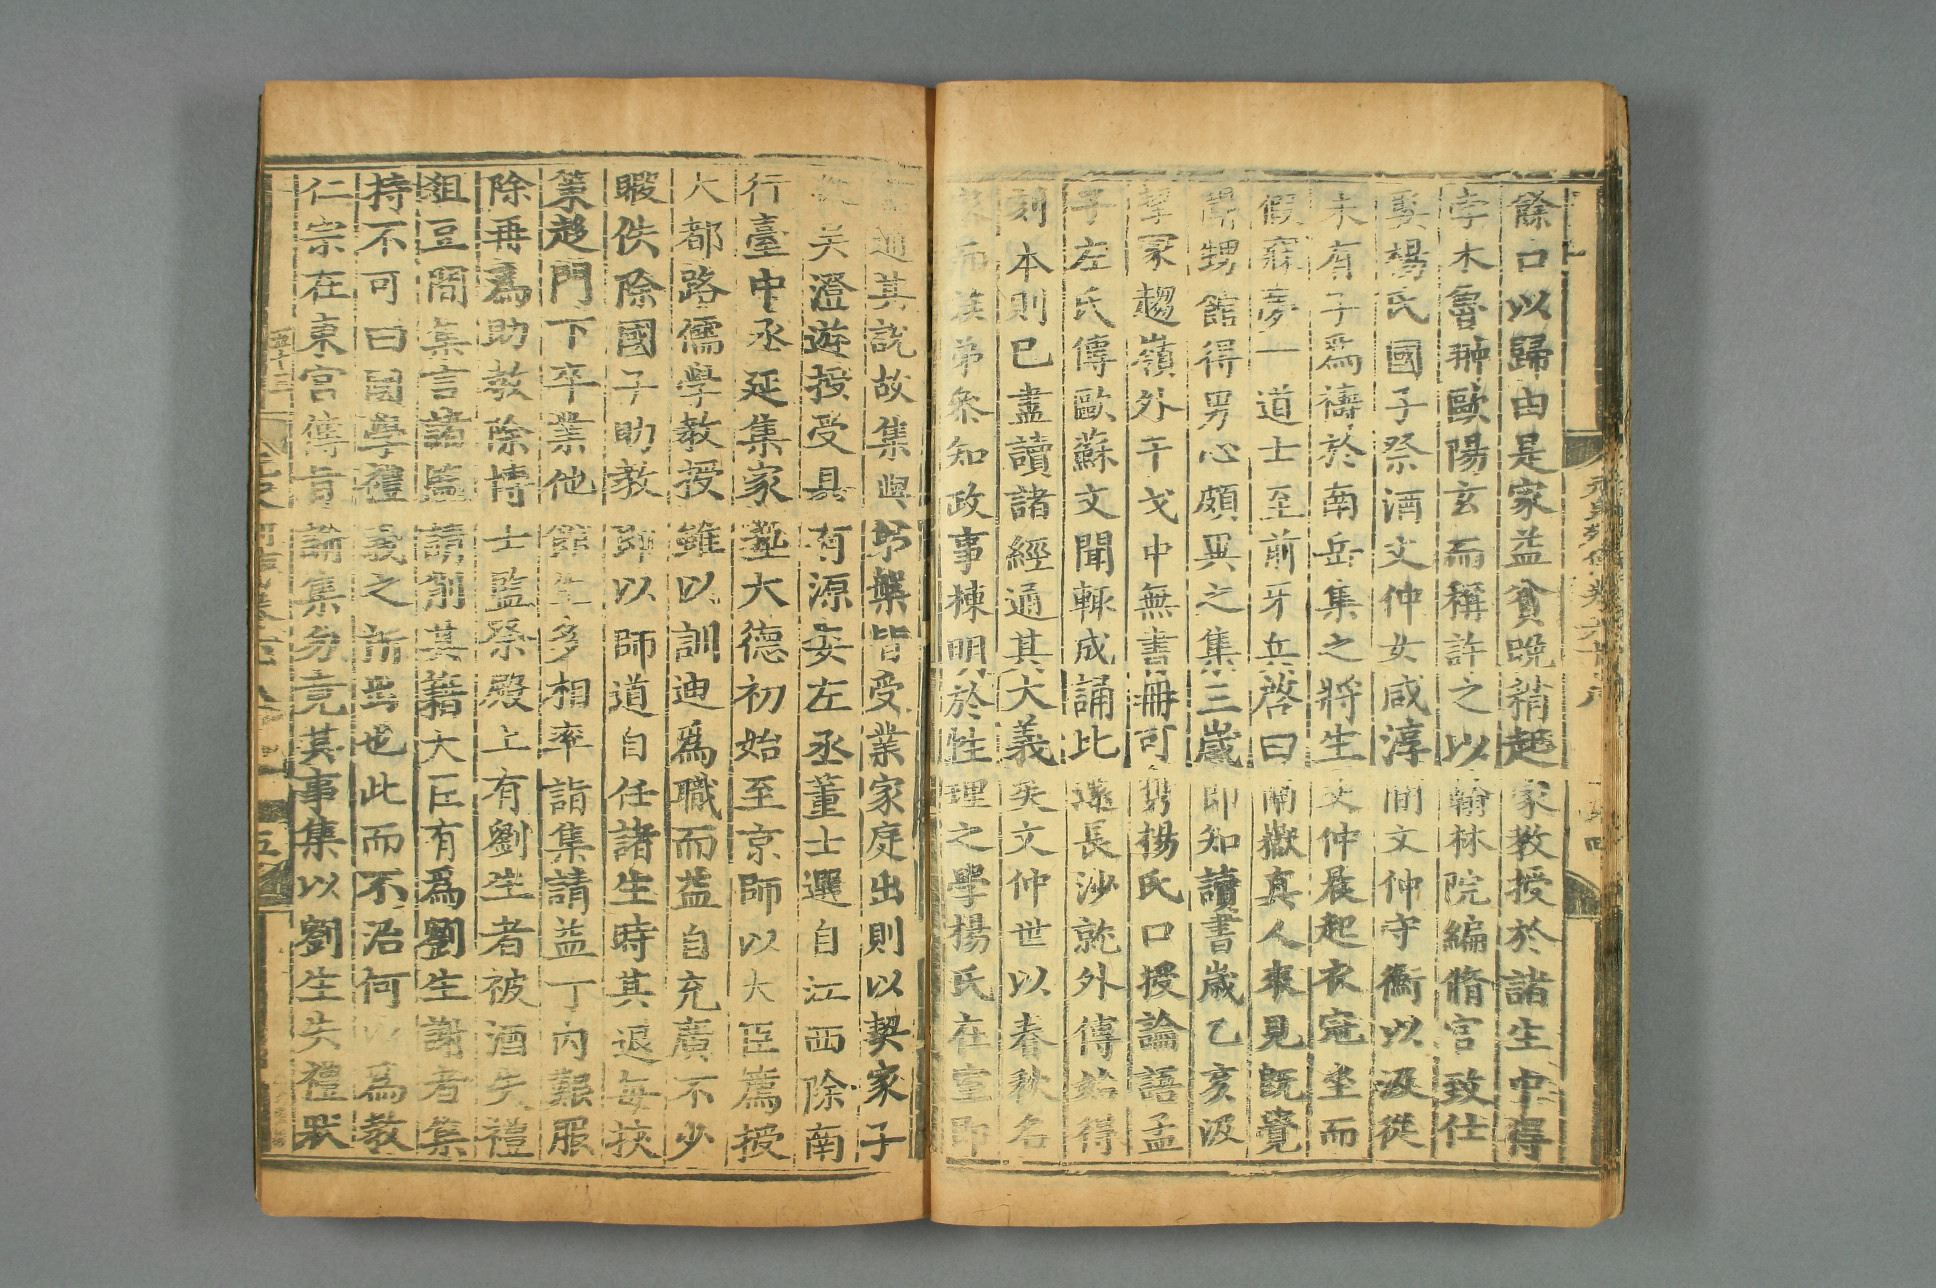 餘口以歸由是家益貧晩稍起家教授於諸生中得
孛木魯翀歐陽玄而稱許之以翰林院編脩官致仕
娶楊氏國子祭酒文仲女咸淳間文仲守衡以汲從
未有子爲禱於南岳集之將生文仲晨起衣冠坐而
假寐夢一道士至前牙兵啓曰南嶽真人來見旣覺
聞甥館得男心頗異之集三歲即知讀書歲乙亥汲
挈家趨嶺外干戈中無書冊可携楊氏口授論語孟
子左氏傳歐蘇文聞輒成誦比還長沙就外傳始得
刻本則已盡讀諸經通其大義矣文仲世以春秋名
家而族弟叅知政事棟明於性理之學楊氏在室即
通其說故集與弟槃皆受業家庭出則以契家子
從吳澄遊授受具有源委左丞董士選自江西除南
行臺中丞延集家塾大德初始至京師以大臣薦授
大都路儒學教授雖以訓迪爲職而益自充廣不少
暇佚除國子助教即以師道自任諸生時其退每挾
策趍門下卒業他館生多相率詣集請益丁內艱服
除再爲助敎除博士監祭殿上有劉生者被酒失禮
俎豆間集言諸監請削其籍大臣有爲劉生謝者集
持不可曰國學禮義之所出也此而不治何以爲敎
仁宗在東宮傳旨諭集勿竟其事集以劉生失禮狀